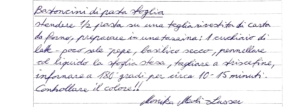 Bastoncini di pasta sfoglia
stendere 1/2 pasta su una teglia rivestita di carta
da forno, preparare in una tazzina: 1 cucchiaio di
latte - poco sale, pepe, basilico secco, pennellare
col liquido la sfoglia stesa, tagliare a striscioline,
infornare a 180 gradi per circa 10-15 minuti.
Controllare il colore!!